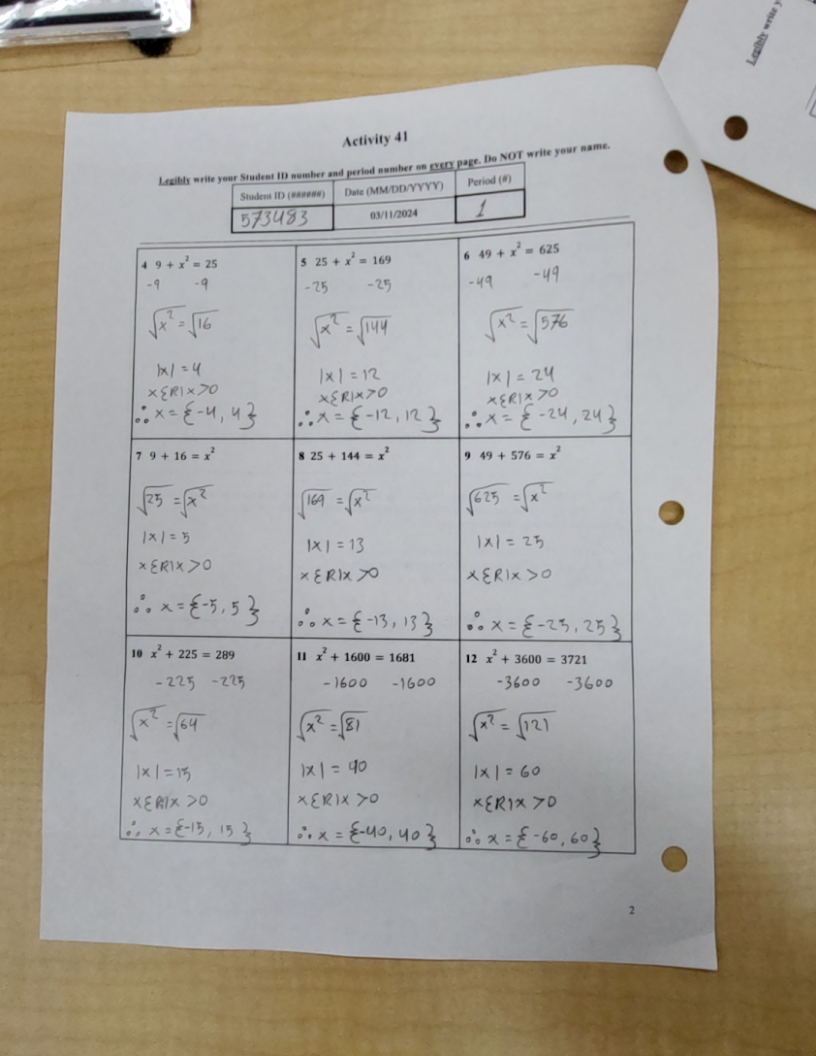 Legibly write y
Activity 41
Legibly write your Student ID number and period number on every page. Do NOT write your name.
Student ID (######) Date (MM/DD/YYYY) Period (#)
573483 03/11/2024 1
4 9 + x² = 25
-9 -9
√x² = √16
|x| = 4
xƐR|x>0
∴ x = {-4, 4}
5 25 + x² = 169
-25 -25
√x² = √144
|x| = 12
xƐR|x>0
∴ x = {-12, 12}
6 49 + x² = 625
-49 -49
√x² = √576
|x| = 24
xƐR|x>0
∴ x = {-24, 24}
7 9 + 16 = x²
√25 = √x²
|x| = 5
xƐR|x>0
∴ x = {-5, 5}
8 25 + 144 = x²
√169 = √x²
|x| = 13
xƐR|x>0
∴ x = {-13, 13}
9 49 + 576 = x²
√625 = √x²
|x| = 25
xƐR|x>0
∴ x = {-25, 25}
10 x² + 225 = 289
-225 -225
√x² = √64
|x| = 15
xƐR|x>0
∴ x = {-15, 15}
11 x² + 1600 = 1681
-1600 -1600
√x² = √81
|x| = 40
xƐR|x>0
∴ x = {-40, 40}
12 x² + 3600 = 3721
-3600 -3600
√x² = √121
|x| = 60
xƐR|x>0
∴ x = {-60, 60}
2